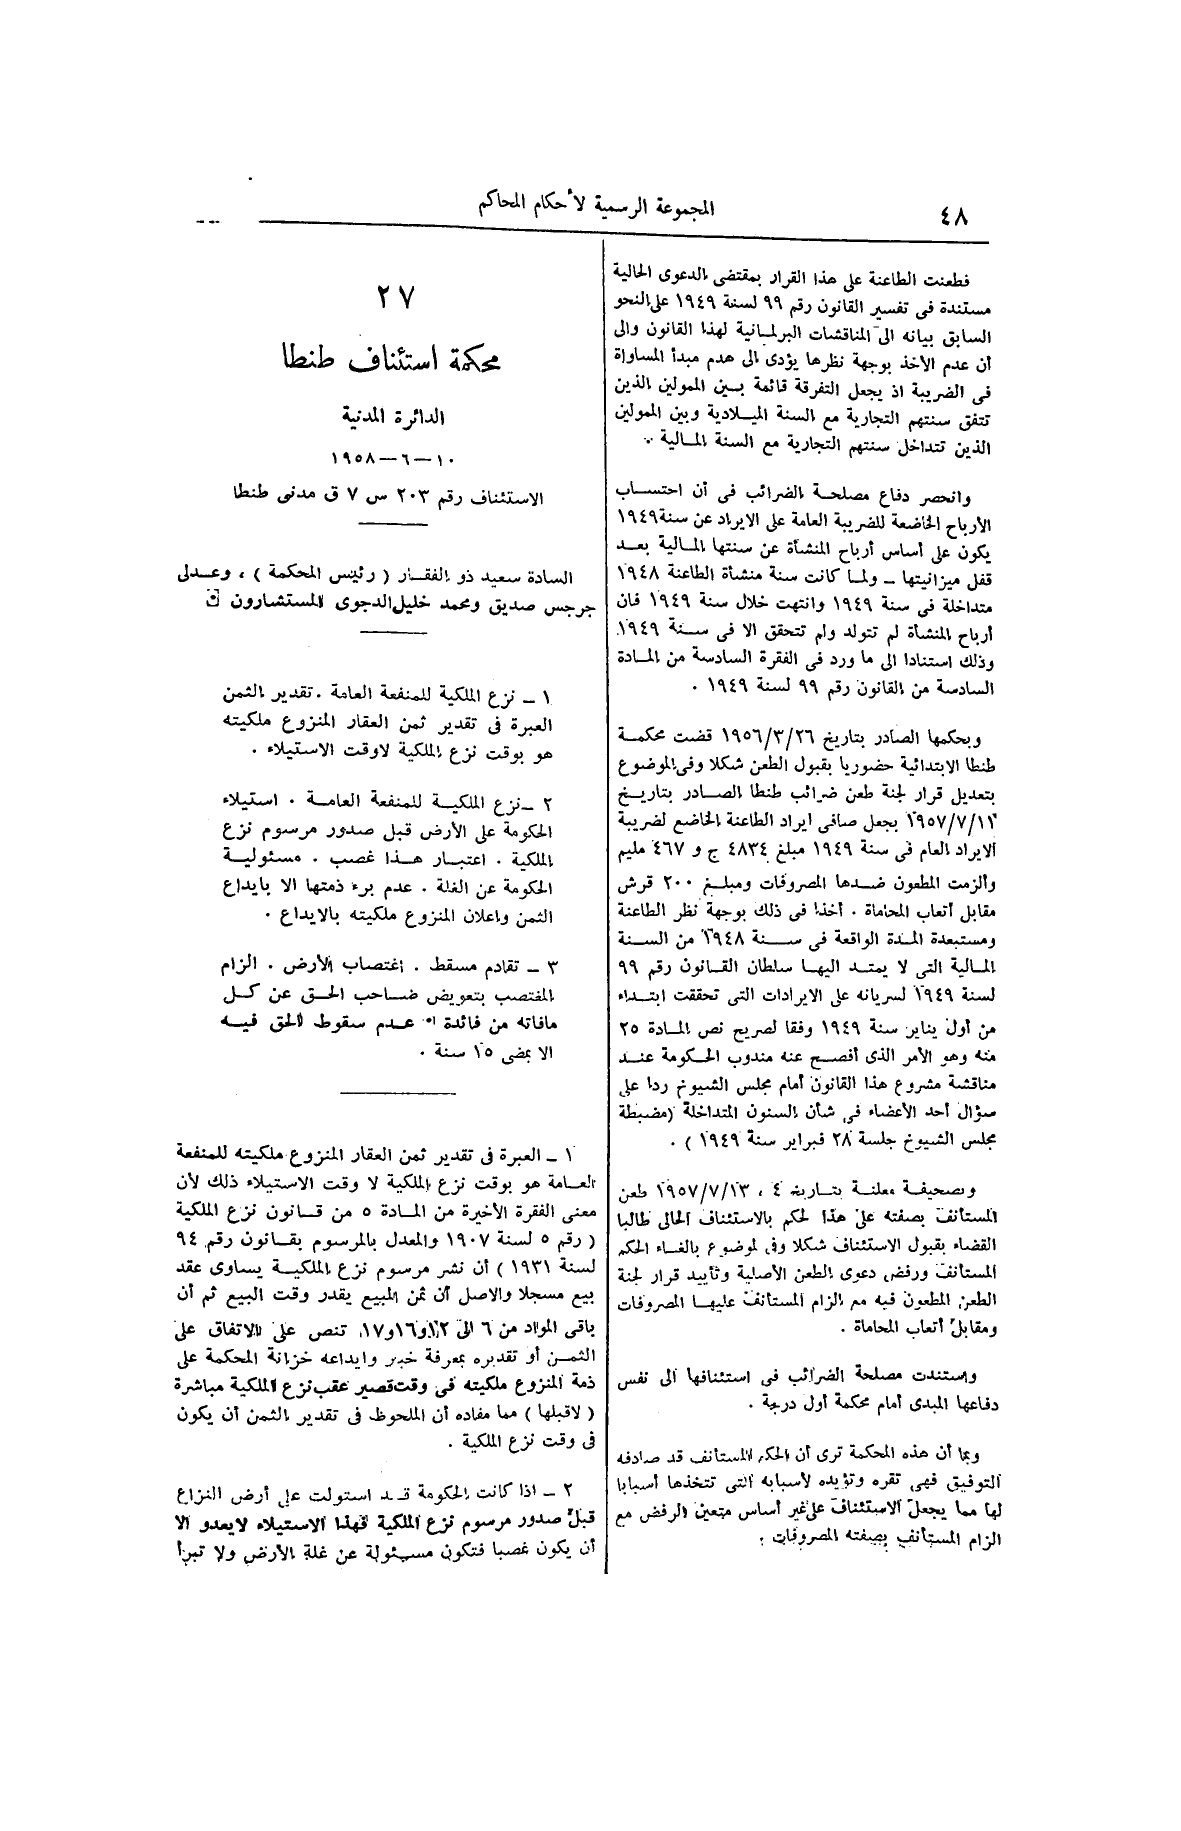 ٤٨
المجموعة الرسمية لأحكام المحاكم
فطعنت الطاعنة على هذا القرار بمقتضى الدعوى الحالية
مستندة فى تفسير القانون رقم ٩٩ لسنة ١٩٤٩ على النحو
السابق بيانه الى المناقشات البرلمانية لهذا القانون والى
أن عدم الأخذ بوجهة نظرها يؤدى الى هدم مبدأ المساواة
فى الضريبة اذ يجعل التفرقة قائمة بين الممولين الذين
تتفق سنتهم التجارية مع السنة الميلادية وبين الممولين
الذين تتداخل سنتهم التجارية مع السنة المالية .
وانحصر دفاع مصلحة الضرائب فى أن احتساب
الأرباح الخاضعة للضريبة العامة على الايراد عن سنة ١٩٤٩
يكون على أساس أرباح المنشأة عن سنتها المالية بعد
قفل ميزانيتها ــ ولما كانت سنة منشأة الطاعنة ١٩٤٨
متداخلة فى سنة ١٩٤٩ وانتهت خلال سنة ١٩٤٩ فان
أرباح المنشأة لم تتولد ولم تتحقق الا فى سنة ١٩٤٩
وذلك استنادا الى ما ورد فى الفقرة السادسة من المادة
السادسة من القانون رقم ٩٩ لسنة ١٩٤٩ .
وبحكمها الصادر بتاريخ ١٩٥٦/٣/٢٦ قضت محكمة
طنطا الابتدائية حضوريا بقبول الطعن شكلا وفى الموضوع
بتعديل قرار لجنة طعن ضرائب طنطا الصادر بتاريخ
١٩٥٧/٧/١١ بجعل صافى ايراد الطاعنة الخاضع لضريبة
الايراد العام فى سنة ١٩٤٩ مبلغ ٤٨٣٤ ج و ٤٦٧ مليم
وألزمت المطعون ضدها المصروفات ومبلغ ٢٠٠ قرش
مقابل أتعاب المحاماة . أخذا فى ذلك بوجهة نظر الطاعنة
ومستبعدة المدة الواقعة فى سنة ١٩٤٨ من السنة
المالية التى لا يمتد اليها سلطان القانون رقم ٩٩
لسنة ١٩٤٩ لسريانه على الايرادات التى تحققت ابتداء
من أول يناير سنة ١٩٤٩ وفقا لصريح نص المادة ٢٥
منه وهو الأمر الذى أفصح عنه مندوب الحكومة عند
مناقشة مشروع هذا القانون أمام مجلس الشيوخ ردا على
سؤال أحد الأعضاء فى شأن السنون المتداخلة (مضبطة
مجلس الشيوخ جلسة ٢٨ فبراير سنة ١٩٤٩ ) .
وبصحيفة معلنة بتاريخ ٤ ، ١٩٥٧/٧/١٣ طعن
المستأنف بصفته على هذا لحكم بالاستئناف الحالى طالبا
القضاء بقبول الاستئناف شكلا وفى لموضوع بالغاء الحكم
المستأنف ورفض دعوى الطعن الأصلية وتأييد قرار لجنة
الطعن المطعون فيه مع الزام المستأنف عليها المصروفات
ومقابل أتعاب المحاماة .
واستندت مصلحة الضرائب فى استئنافها الى نفس
دفاعها المبدى أمام محكمة أول درجة .
وبما أن هذه المحكمة ترى أن الحكم المستأنف قد صادفه
التوفيق فهى تقره وتؤيده لأسبابه التى تتخذها أسبابا
لها مما يجعل الاستئناف على غير أساس متعين الرفض مع
الزام المستأنف بصفته المصروفات .
٢٧
محكمة استئناف طنطا
الدائرة المدنية
١٠ــ٦ــ١٩٥٨
الاستئناف رقم ٢٠٣ س ٧ ق مدنى طنطا
السادة سعيد ذو الفقار ( رئيس المحكمة ) ، وعدلى
جرجس صديق ومحمد خليل الدجوى المستشارون
١ ــ نزع الملكية للمنفعة العامة . تقدير الثمن
العبرة فى تقدير ثمن العقار المنزوع ملكيته
هو بوقت نزع الملكية لاوقت الاستيلاء .
٢ ــ نزع الملكية للمنفعة العامة . استيلاء
الحكومة على الأرض قبل صدور مرسوم نزع
الملكية . اعتبار هذا غصب . مسئولية
الحكومة عن الغلة . عدم برء ذمتها الا بايداع
الثمن واعلان المنزوع ملكيته بالايداع .
٣ ــ تقادم مسقط . اغتصاب الأرض . الزام
المغتصب بتعويض صاحب الحق عن كل
مافاته من فائدة . عدم سقوط الحق فيه
الا بمضى ١٥ سنة .
١ ــ العبرة فى تقدير ثمن العقار المنزوع ملكيته للمنفعة
العامة هو بوقت نزع الملكية لا وقت الاستيلاء ذلك لأن
معنى الفقرة الأخيرة من المادة ٥ من قانون نزع الملكية
( رقم ٥ لسنة ١٩٠٧ والمعدل بالمرسوم بقانون رقم ٩٤
لسنة ١٩٣١ ) أن نشر مرسوم نزع الملكية يساوى عقد
بيع مسجلا والاصل أن ثمن المبيع يقدر وقت البيع ثم أن
باقى المواد من ٦ الى ١٢ و١٦ و١٧ تنص على الاتفاق على
الثمن أو تقديره بمعرفة خبير وايداعه خزانة المحكمة على
ذمة المنزوع ملكيته فى وقت قصير عقب نزع الملكية مباشرة
( لاقبلها ) مما مفاده أن الملحوظ فى تقدير الثمن أن يكون
فى وقت نزع الملكية .
٢ ــ اذا كانت الحكومة قد استولت على أرض النزاع
قبل صدور مرسوم نزع الملكية فهذا الاستيلاء لايعدو الا
أن يكون غصبا فتكون مسئولة عن غلة الأرض ولا تبرأ